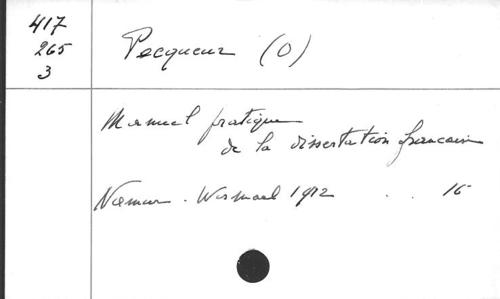 417
265
3
Pecqueur (O)
Manuel pratique
de la dissertation française
Namur. Wesmael 1912 . . 16